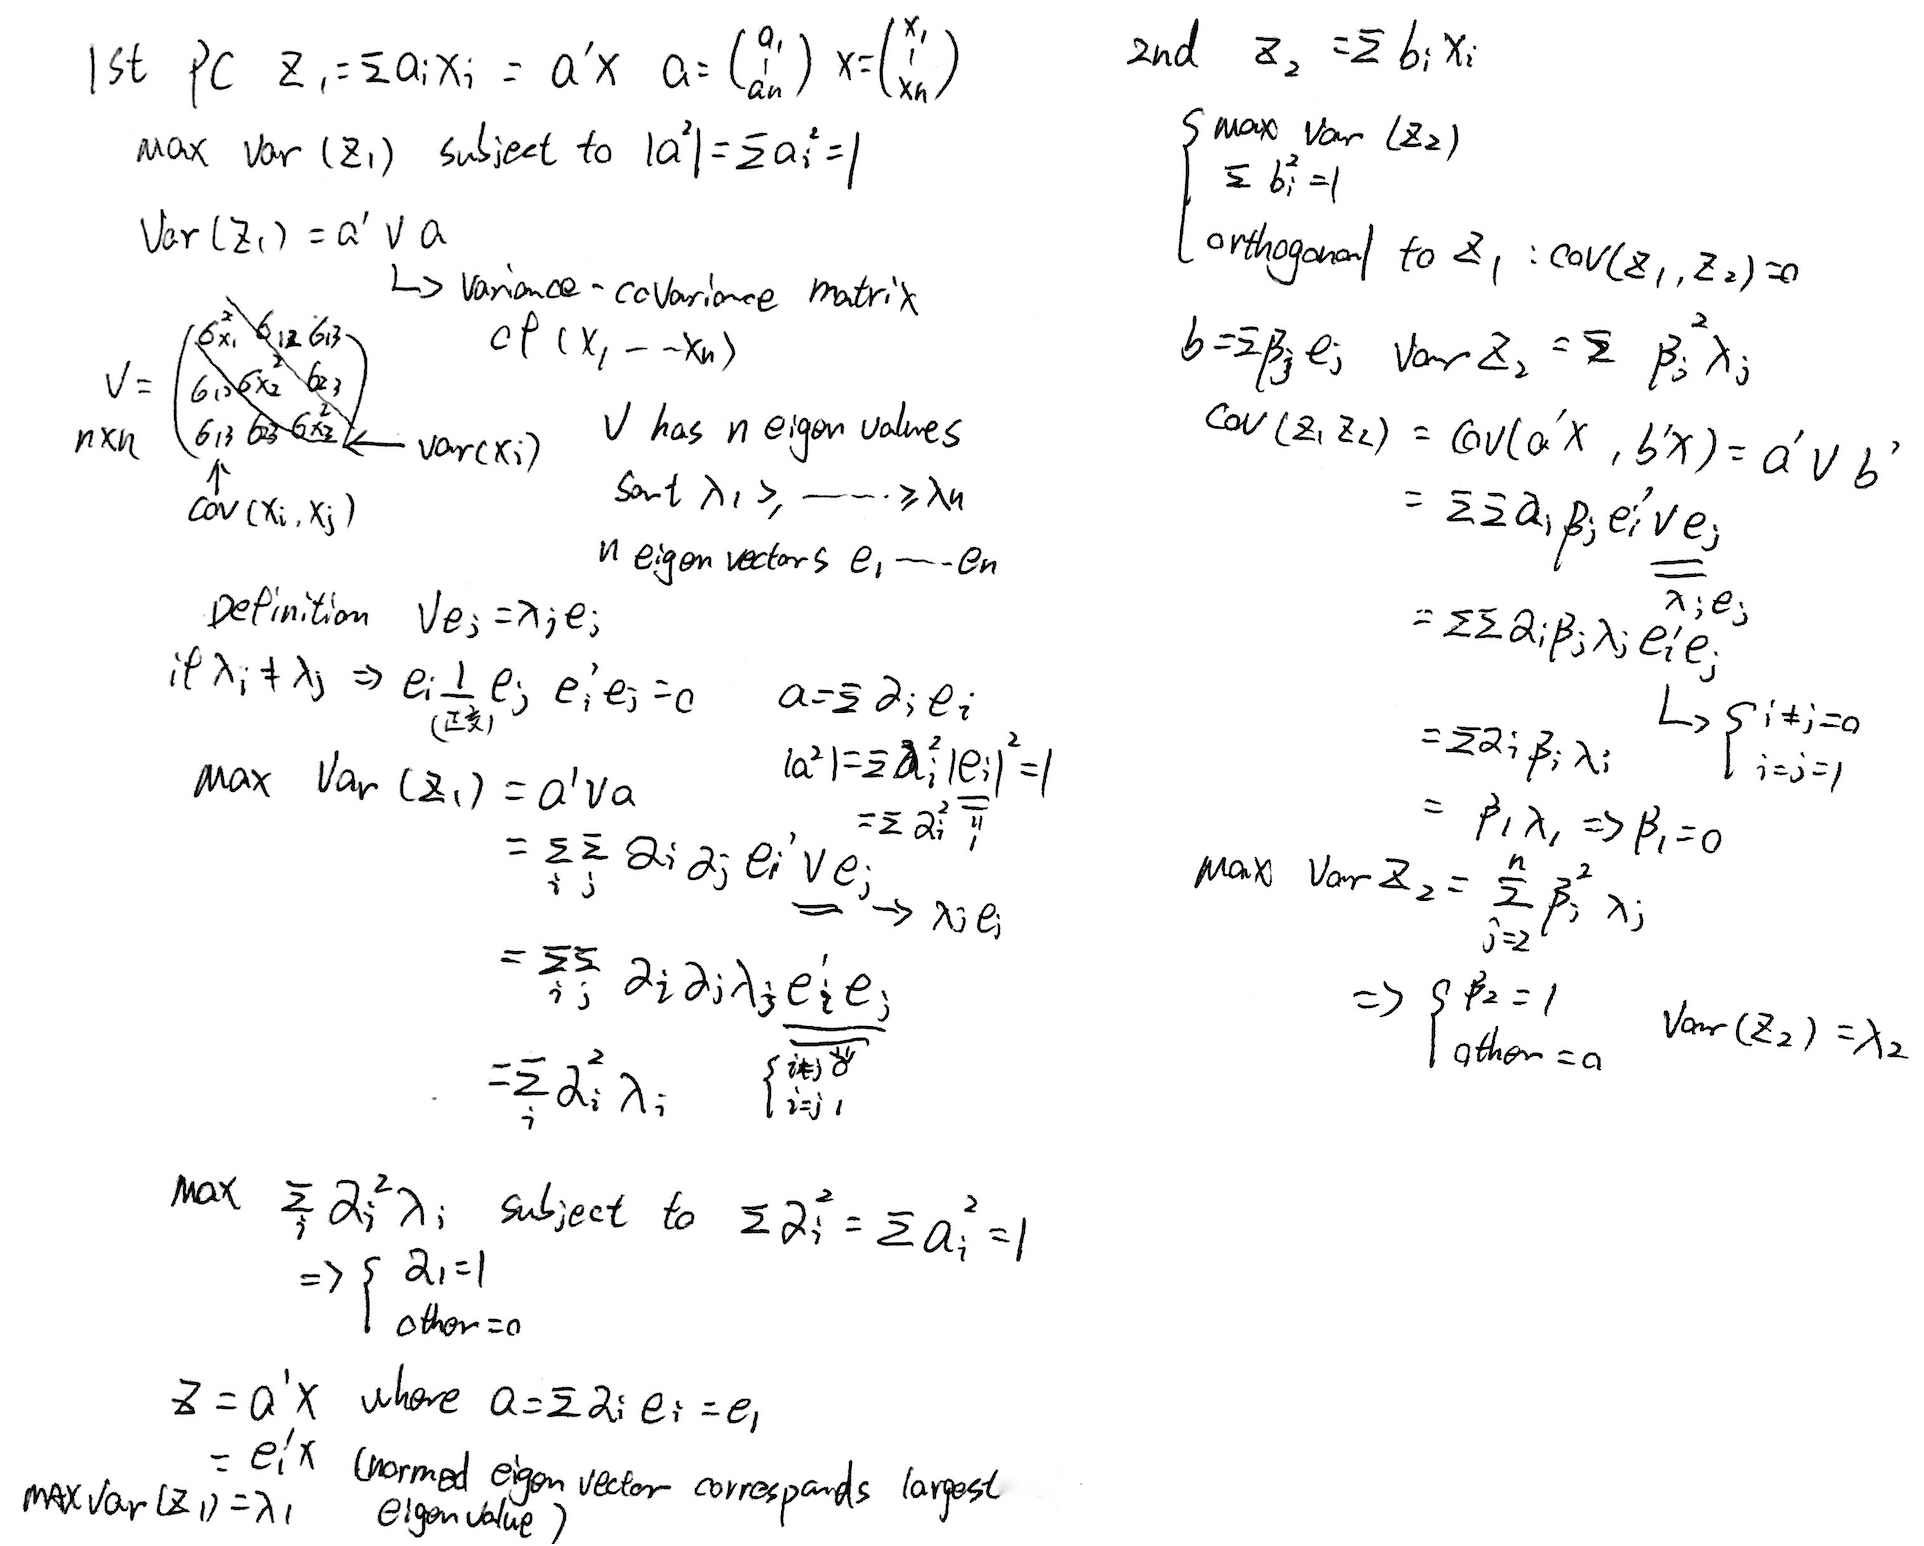 1st PC z₁ = Σaᵢxᵢ = a'x a = (a₁ | aₙ) x = (x₁ | xₙ)
max Var (z₁) subject to |a²| = Σaᵢ² = 1
Var (z₁) = a' V a
↳ variance - covariance matrix
of (x₁ - - xₙ)
V =
n×n
(σx₁² σ₁₂ σ₁₃
σ₁₂ σx₂² σ₂₃
σ₁₃ σ₂₃ σx₃²) ← var(xᵢ)
↑
cov (xᵢ, xⱼ)
V has n eigen values
sort λ₁ ≥ ------ ≥ λₙ
n eigen vectors e₁ ---- eₙ
Definition Veⱼ = λⱼeⱼ
if λᵢ ≠ λⱼ ⇒ eᵢ ⊥ eⱼ eᵢ'eⱼ = 0
(正交)
a = Σ αᵢ eᵢ
|a²| = Σ αᵢ² |eᵢ|² = 1
= Σ αᵢ² " 1
max Var (z₁) = a'Va
= Σᵢ Σⱼ αᵢ αⱼ eᵢ' V eⱼ → λⱼ eⱼ
= Σᵢ Σⱼ αᵢ αⱼ λⱼ eᵢ' eⱼ
= Σᵢ αᵢ² λᵢ { i≠j 0
i=j 1
max Σᵢ αᵢ² λᵢ subject to Σ αᵢ² = Σ aᵢ² = 1
⇒ { α₁ = 1
other = 0
z = a'x where a = Σ αᵢ eᵢ = e₁
= e₁'x (normed eigen vector corresponds largest
eigen value)
max Var (z₁) = λ₁
2nd z₂ = Σ bᵢ xᵢ
{ max Var (z₂)
Σ bᵢ² = 1
orthogonal to z₁ : cov(z₁, z₂) = 0
b = Σβⱼ eⱼ Var z₂ = Σ βⱼ² λⱼ
cov (z₁ z₂) = cov(a'x , b'x) = a' V b'
= ΣΣ αᵢ βⱼ eᵢ' V eⱼ
λⱼ eⱼ
= ΣΣ αᵢ βⱼ λⱼ eᵢ' eⱼ
↳ { i≠j = 0
i=j = 1
= Σ αᵢ βᵢ λᵢ
= β₁ λ₁ ⇒ β₁ = 0
max Var z₂ = Σⁿⱼ₌₂ βⱼ² λⱼ
⇒ { β₂ = 1
other = 0
Var (z₂) = λ₂